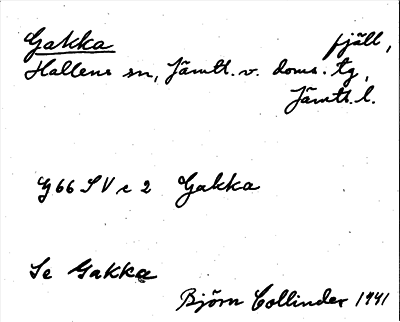 Gakka fjäll,
Hallens sn, Jämtl. v. doms. tg,
Jämtl. l.
G 66 SV c 2 Gakka
Se Gakka
Björn Collinder 1941